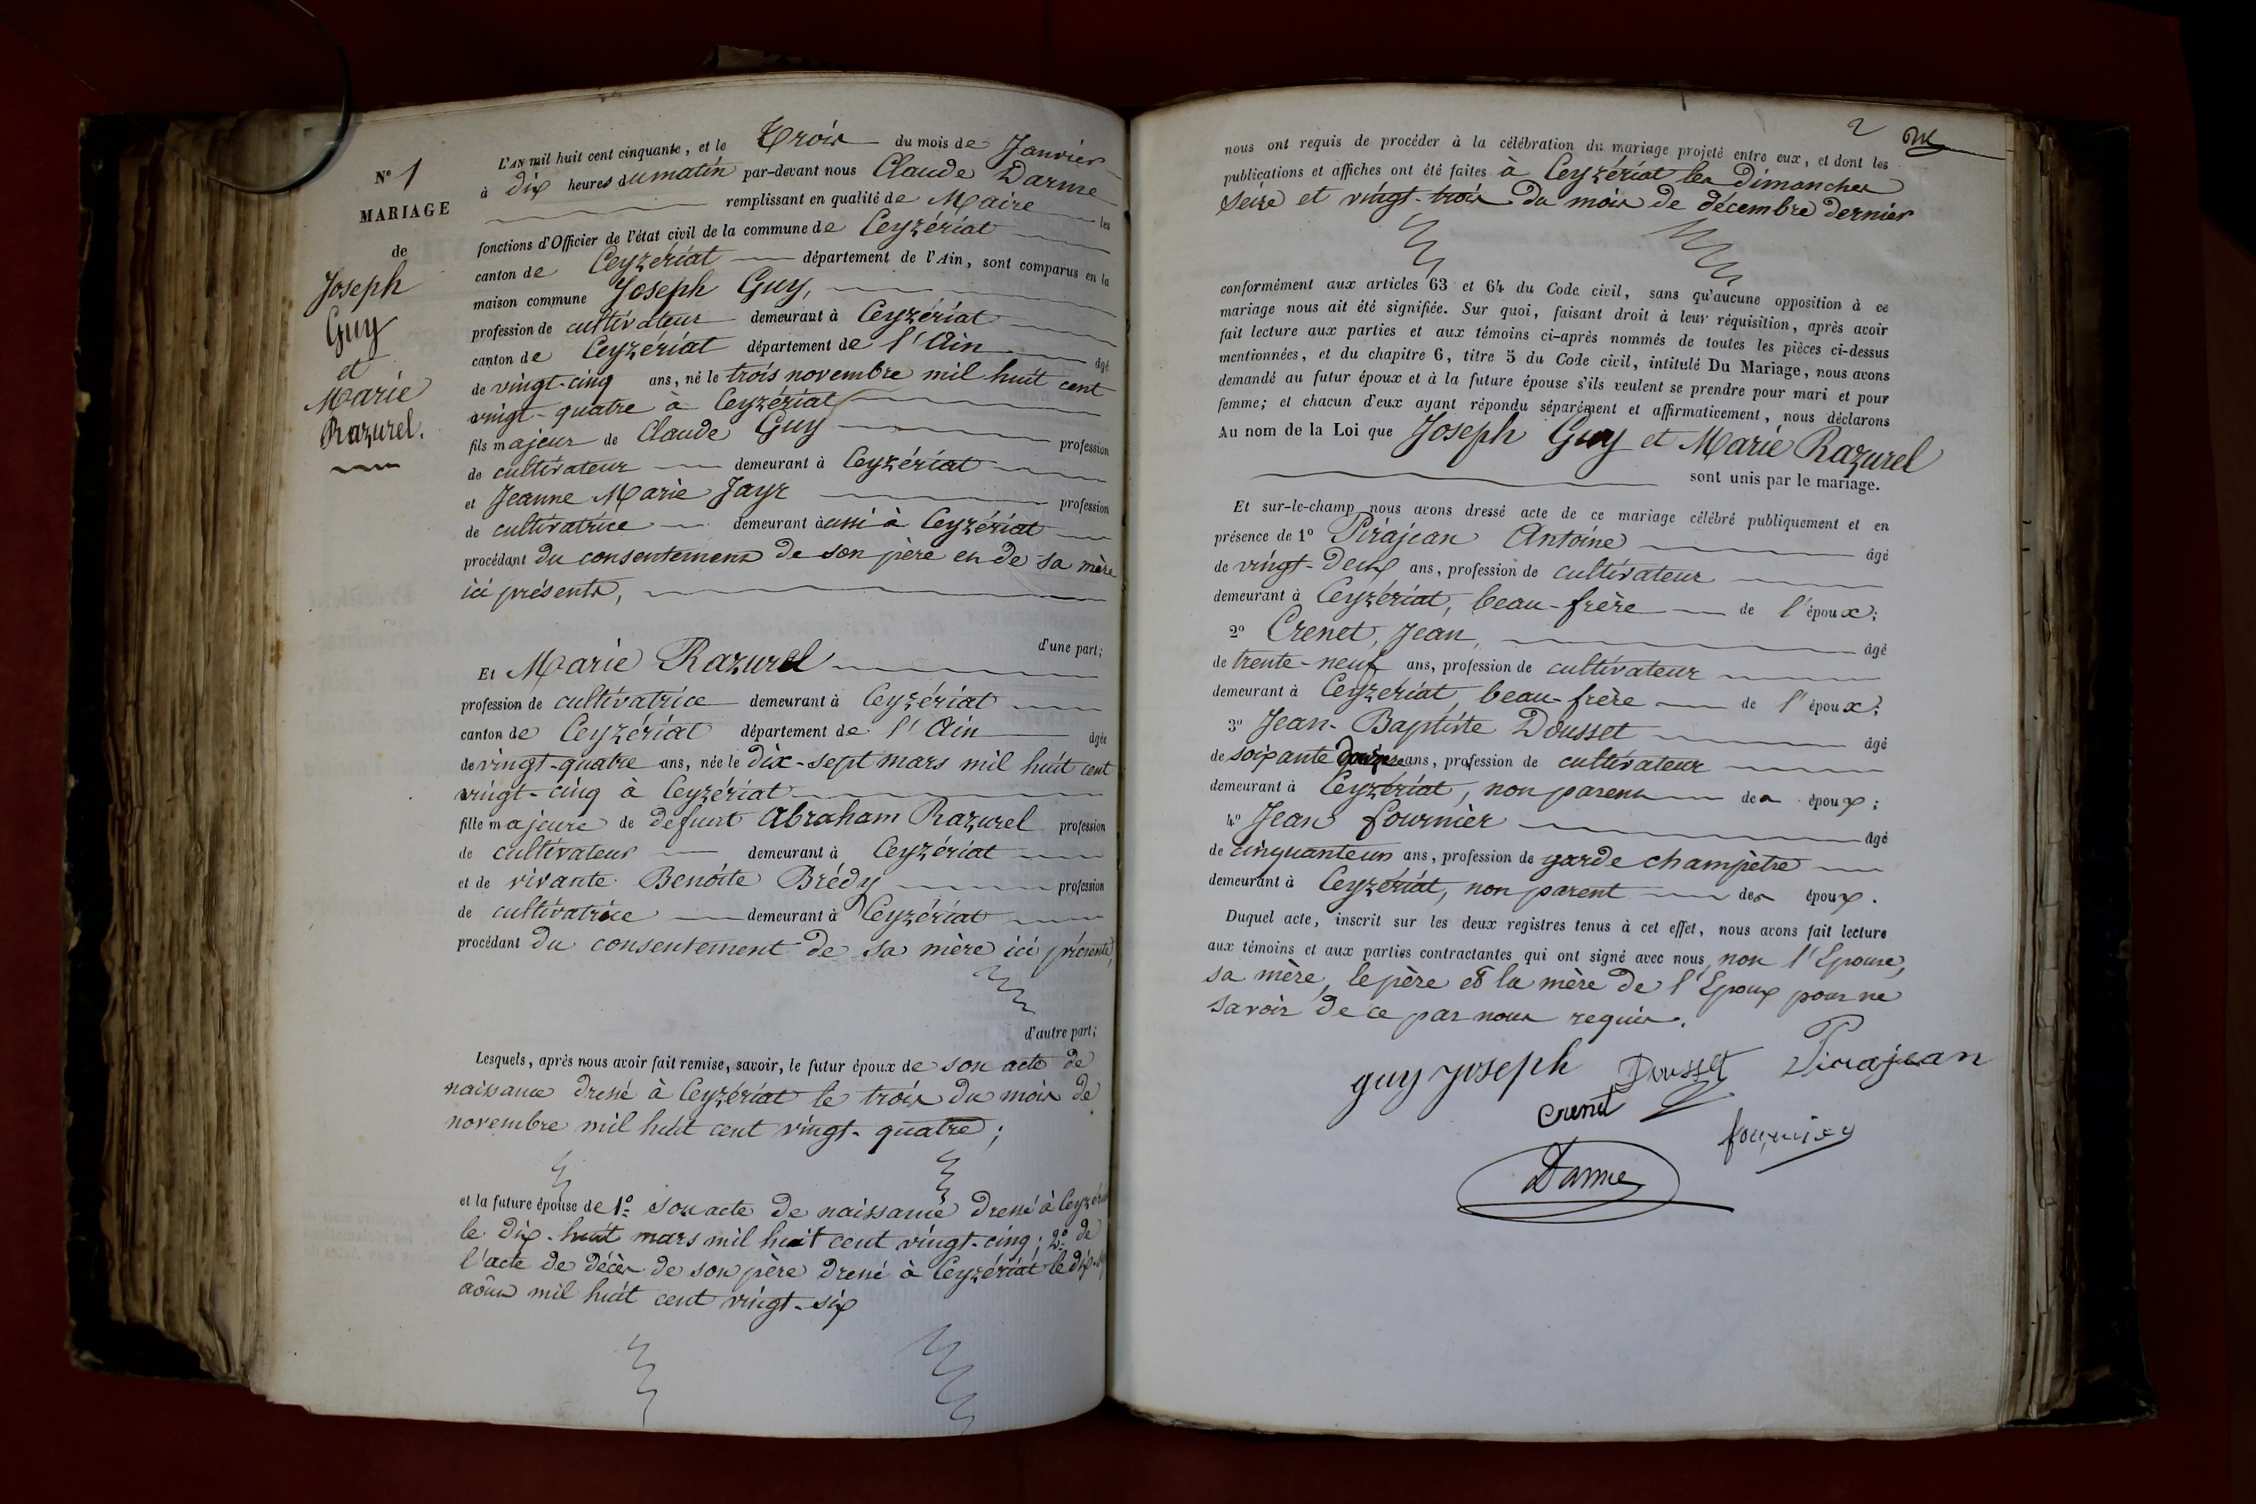 N° 1
MARIAGE
de
Joseph
Guy
et
Marie
Razurel.
L'AN mil huit cent cinquante, et le Trois du mois de Janvier
à dix heures du matin par-devant nous Claude Darme
remplissant en qualité de Maire les
fonctions d'Officier de l'état civil de la commune de Ceyzériat
canton de Ceyzériat département de l'Ain, sont comparus en la
maison commune Joseph Guy,
profession de cultivateur demeurant à Ceyzériat
canton de Ceyzériat département de l'Ain âgé
de vingt-cinq ans, né le trois novembre mil huit cent
vingt-quatre à Ceyzériat
fils majeur de Claude Guy profession
de cultivateur demeurant à Ceyzériat
et Jeanne Marie Jayr profession
de cultivatrice demeurant aussi à Ceyzériat
procédant du consentement de son père et de sa mère
ici présents,
d'une part;
Et Marie Razurel
profession de cultivatrice demeurant à Ceyzériat
canton de Ceyzériat département de l'Ain âgée
de vingt-quatre ans, née le dix-sept mars mil huit cent
vingt-cinq à Ceyzériat
fille majeure de défunt Abraham Razurel profession
de cultivateur demeurant à Ceyzériat
et de vivante Benoîte Brédy profession
de cultivatrice demeurant à Ceyzériat
procédant du consentement de sa mère ici présente,
d'autre part;
Lesquels, après nous avoir fait remise, savoir, le futur époux de son acte de
naissance dressé à Ceyzériat le trois du mois de
novembre mil huit cent vingt-quatre;
et la future épouse de 1° son acte de naissance dressé à Ceyzériat
le dix-huit mars mil huit cent vingt-cinq; 2° de
l'acte de décès de son père dressé à Ceyzériat le
août mil huit cent vingt-six
2
nous ont requis de procéder à la célébration du mariage projeté entre eux, et dont les
publications et affiches ont été faites à Ceyzériat les dimanches
seize et vingt-trois du mois de décembre dernier
conformément aux articles 63 et 64 du Code civil, sans qu'aucune opposition à ce
mariage nous ait été signifiée. Sur quoi, faisant droit à leur réquisition, après avoir
fait lecture aux parties et aux témoins ci-après nommés de toutes les pièces ci-dessus
mentionnées, et du chapitre 6, titre 5 du Code civil, intitulé Du Mariage, nous avons
demandé au futur époux et à la future épouse s'ils veulent se prendre pour mari et pour
femme; et chacun d'eux ayant répondu séparément et affirmativement, nous déclarons
Au nom de la Loi que Joseph Guy et Marie Razurel
sont unis par le mariage.
Et sur-le-champ nous avons dressé acte de ce mariage célébré publiquement et en
présence de 1° Pirajean Antoine âgé
de vingt-deux ans, profession de cultivateur
demeurant à Ceyzériat, beau-frère de l'époux;
2° Crenet, Jean, âgé
de trente-neuf ans, profession de cultivateur
demeurant à Ceyzériat, beau-frère de l'époux;
3° Jean-Baptiste Dousset âgé
de soixante ans, profession de cultivateur
demeurant à Ceyzériat, non parent des époux;
4° Jean fournier âgé
de cinquante un ans, profession de garde champêtre
demeurant à Ceyzériat, non parent des époux.
Duquel acte, inscrit sur les deux registres tenus à cet effet, nous avons fait lecture
aux témoins et aux parties contractantes qui ont signé avec nous, non l'Epouse,
sa mère, le père et la mère de l'Epoux pour ne
savoir de ce par nous requis.
guy joseph Dousset Pirajean
Crenet
fournier
Darme